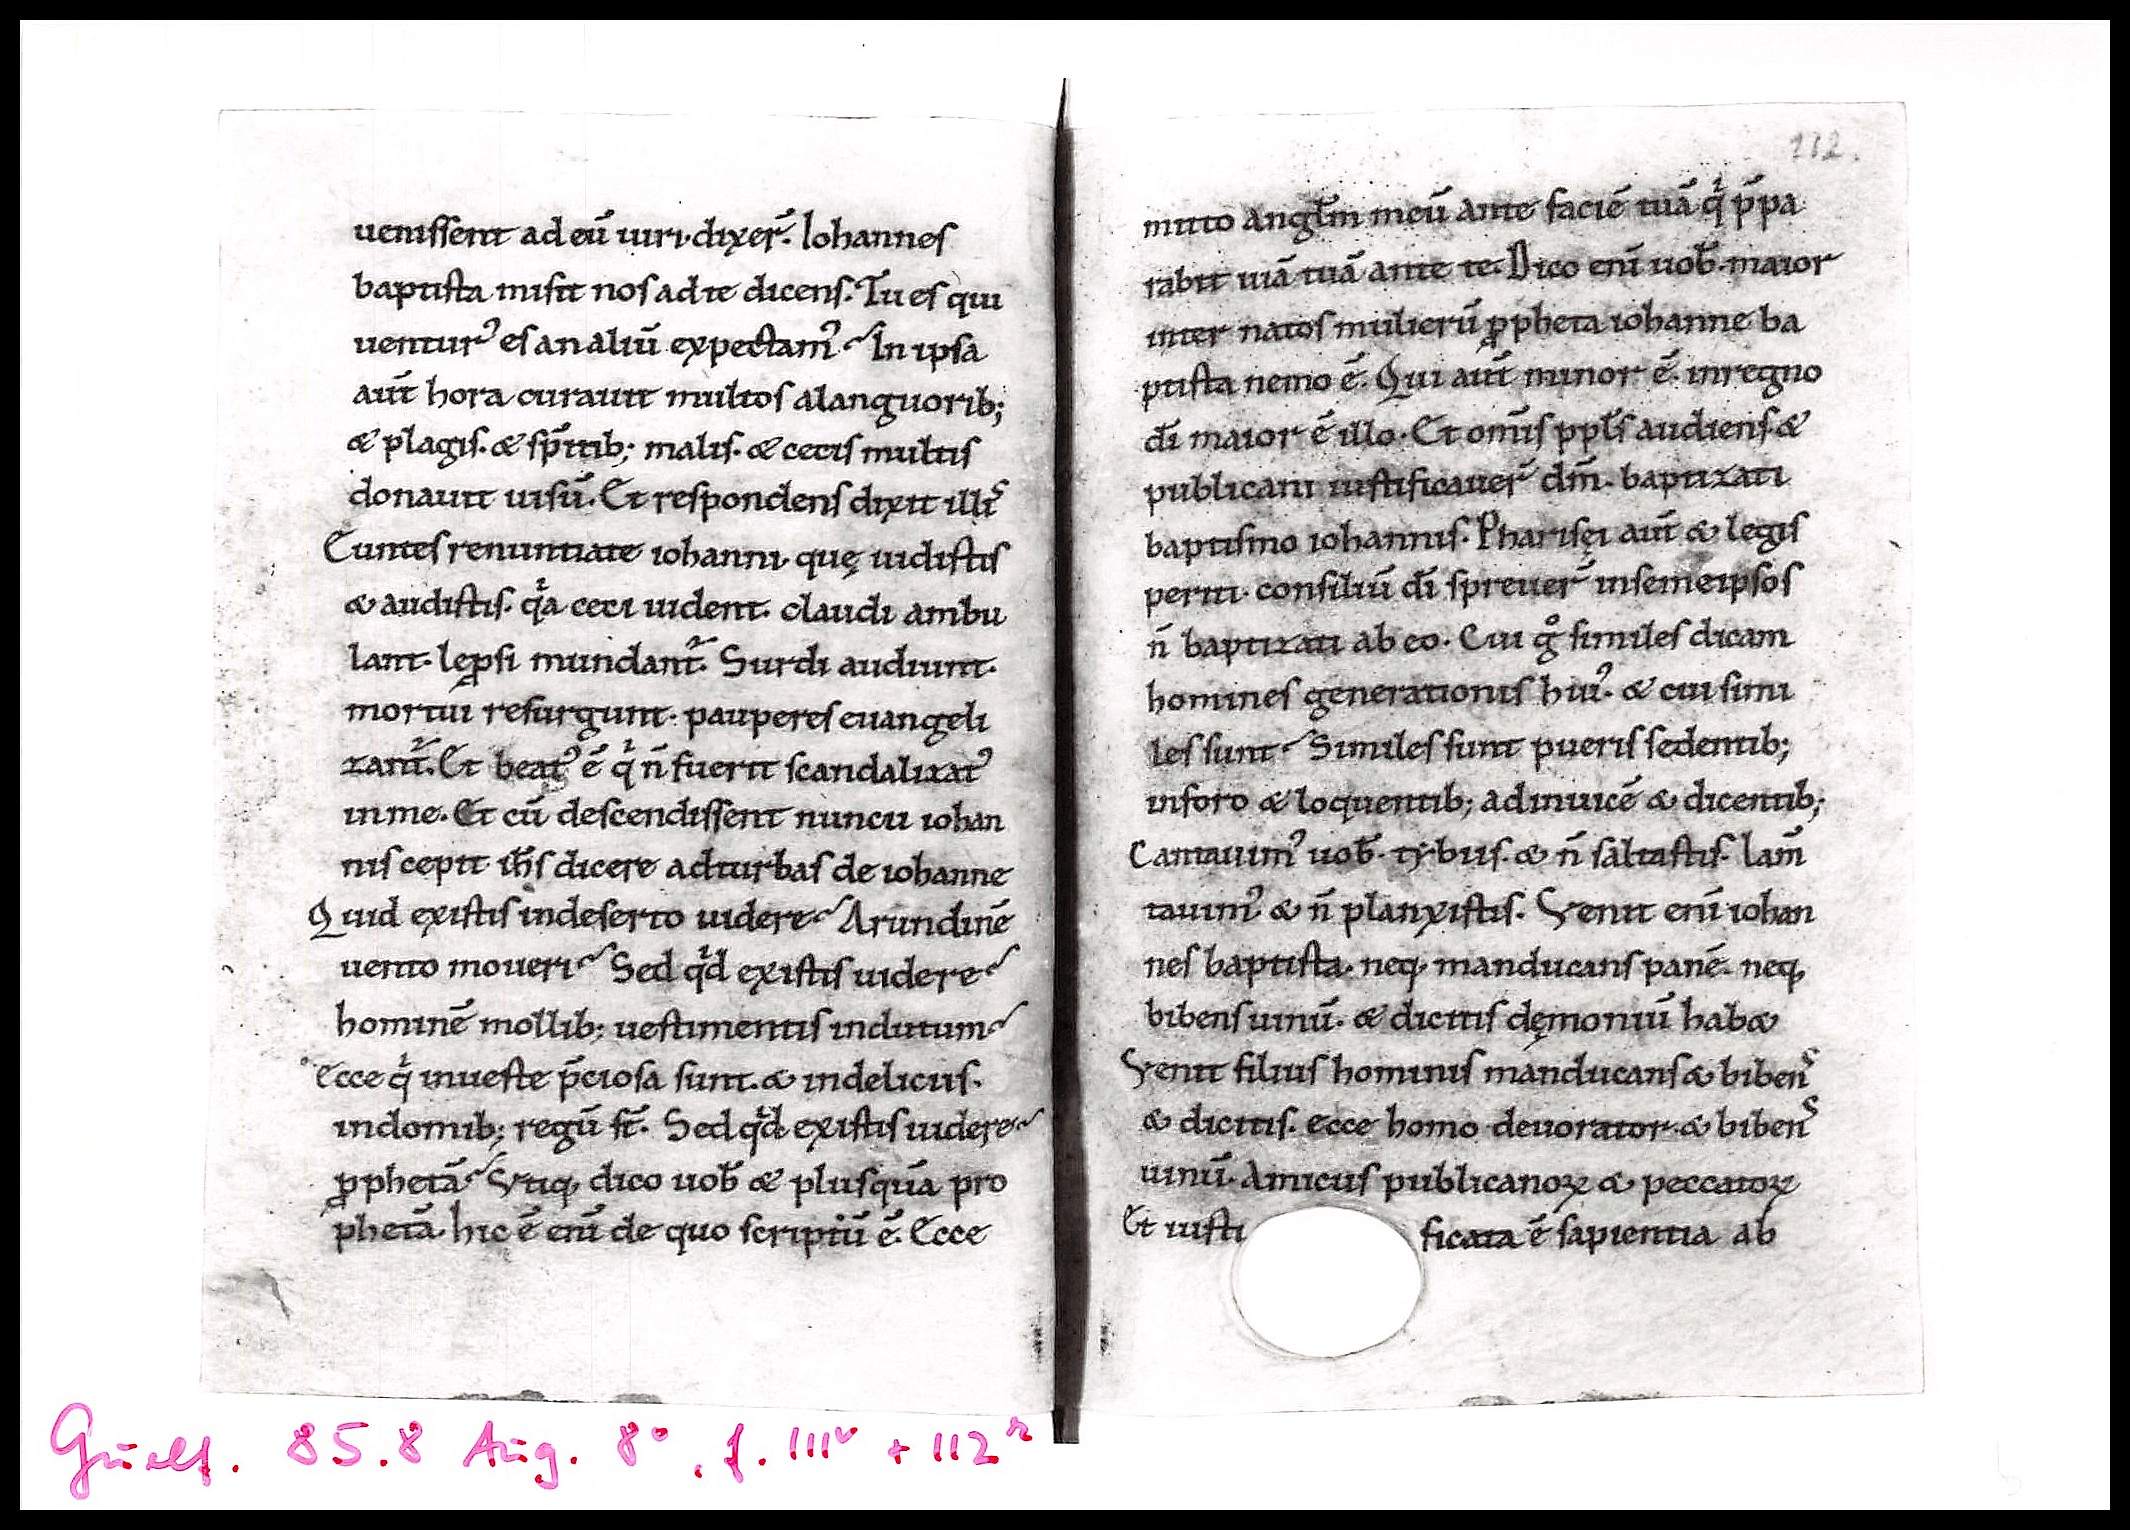 uenissent ad eū uiri·dixer̄. Iohannes
baptista misit nos ad te dicens. Tu es qui
uentur᾽ es an aliū expectam᾽ In ipsa
aut̄ hora curauit multos alanguorib;
& plagis. & sp̄itib; malis. & cecis multis
donauit uisū. Et respondens dixit illis
Euntes renuntiate iohanni quę uidistis
& audistis. qͥa ceci uident. claudi ambu
lant. lep̱si mundant᷑. Surdi audiunt.
mortui resurgunt. pauperes euangeli
zant᷑. Et beat᾽ ē qͥ n̄ fuerit scandalizat᾽
in me. Et cū descendissent nuncii iohan
nis cepit ih̄s dicere adturbas de iohanne
Quid existis indeserto uidere Arundinē
uento moueri Sed qͥd existis uidere
hominē mollib; uestimentis indutum
Ecce qͥ inueste p̄ciosa sunt. & indeliciis.
indomib; regū st̄. Sed qͥd existis uidere
ꝓphetā Vtiq, dico uob̄ & plusquā pro
phetā. hic ē enī de quo scriptū ē. Ecce
112.
mitto angl̄m meū ante faciē tuā qͥ p̄pa
rabit uiā tuā ante te. Dico enī uob̄. maior
inter natos mulierū ꝓpheta iohanne ba
ptista nemo ē. Qui aut̄ minor ē. inregno
dī maior ē illo. Et omīs ppl̄s audiens. &
publicani iustificauer̄ dm̄. baptizati
baptismo iohannis. Pharisęi aut̄ & legis
periti. consiliū dī spreuer̄ insemeipsos
n̄ baptizati ab eo. Cui gͦ similes dicam
homines generationis hui᾽. & cui simi
les sunt Similes sunt pueris sedentib;
inforo & loquentib; adinuicē & dicentib;
Cantauim᾽ uob̄. tybiis. & n̄ saltastis. lam̄
tauim᾽ & n̄ planxistis. Venit enī iohan
nes baptista. neq, manducans panē. neq,
bibens uinū. & dicitis dęmoniū hab&
Venit filius hominis manducans & bibens
& dicitis. ecce homo deuorator & bibens
uinū. Amicus publicanoꝝ & peccatoꝝ
Et iusti ficata ē sapientia ab
Guelf. 85.8 Aug. 8°, f. 111ᵛ + 112ʳ